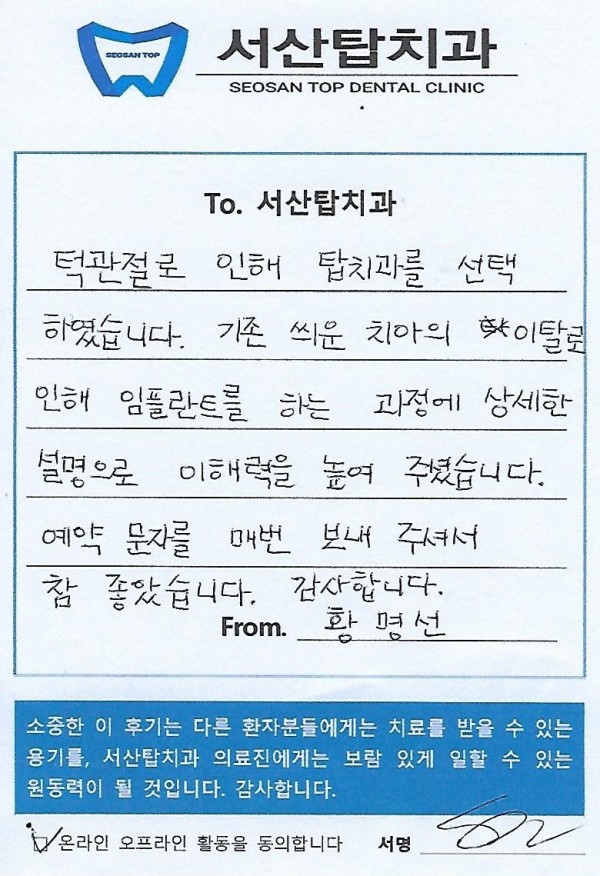 SEOSAN TOP
서산탑치과
SEOSAN TOP DENTAL CLINIC
To. 서산탑치과
턱관절로 인해 탑치과를 선택
하였습니다. 기존 씌운 치아의 이탈로
인해 임플란트를 하는 과정에 상세한
설명으로 이해력을 높여 주셨습니다.
예약 문자를 매번 보내 주셔서
참 좋았습니다. 감사합니다.
From. 황명선
소중한 이 후기는 다른 환자분들에게는 치료를 받을 수 있는
용기를, 서산탑치과 의료진에게는 보람 있게 일할 수 있는
원동력이 될 것입니다. 감사합니다.
온라인 오프라인 활동을 동의합니다 서명